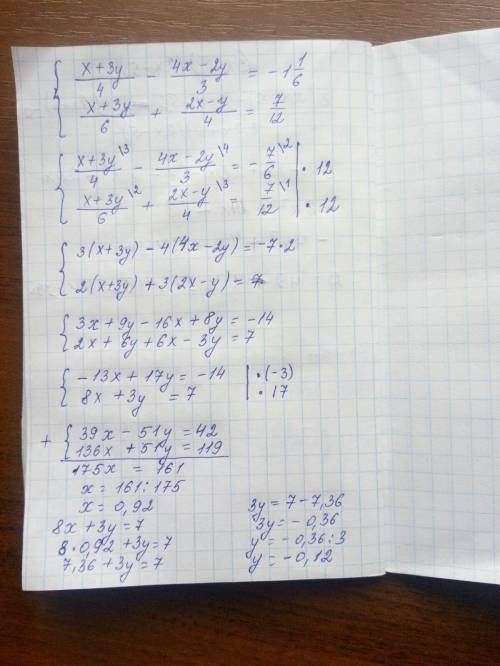 { (x+3y)/4 - (4x-2y)/3 = -1 1/6
(x+3y)/6 + (2x-y)/4 = 7/12
{ (x+3y)/4 \3 - (4x-2y)/3 \4 = - 7/6 \2 | · 12
(x+3y)/6 \2 + (2x-y)/4 \3 = 7/12 \1 | · 12
{ 3(x+3y) - 4(4x-2y) = -7·2
2(x+3y) + 3(2x-y) = 7
{ 3x + 9y - 16x + 8y = -14
2x + 6y + 6x - 3y = 7
{ -13x + 17y = -14 | ·(-3)
8x + 3y = 7 | · 17
+ { 39x - 51y = 42
136x + 51y = 119
175x = 161
x = 161:175
x = 0,92
8x + 3y = 7
8·0,92 + 3y = 7
7,36 + 3y = 7
3y = 7 - 7,36
3y = - 0,36
y = - 0,36 : 3
y = - 0,12